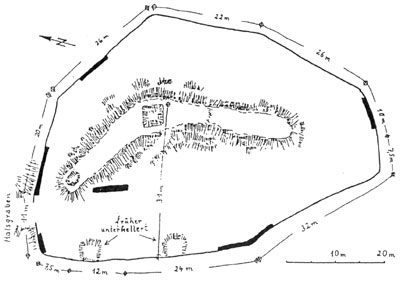 N
22 m
26 m
26 m
20 m
10 m
7,5 m
Halsgraben
11 m
31 m
früher
unterkellert
32 m
7,5 m
12 m
24 m
10 m
20 m